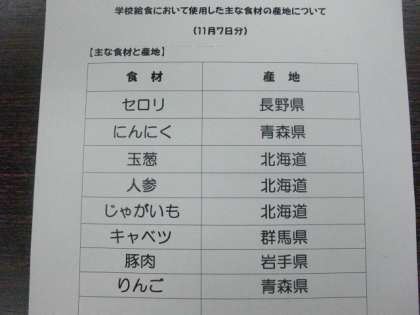 学校給食において使用した主な食材の産地について
(11月7日分)
【主な食材と産地】
食材 産地
セロリ 長野県
にんにく 青森県
玉葱 北海道
人参 北海道
じゃがいも 北海道
キャベツ 群馬県
豚肉 岩手県
りんご 青森県